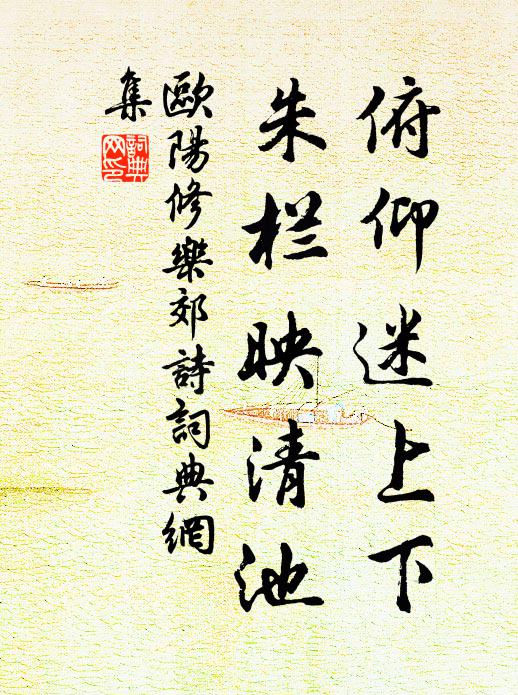 俯仰迷上下
朱栏映清池
歐陽修樂郊詩詞典網
集
詞典網印